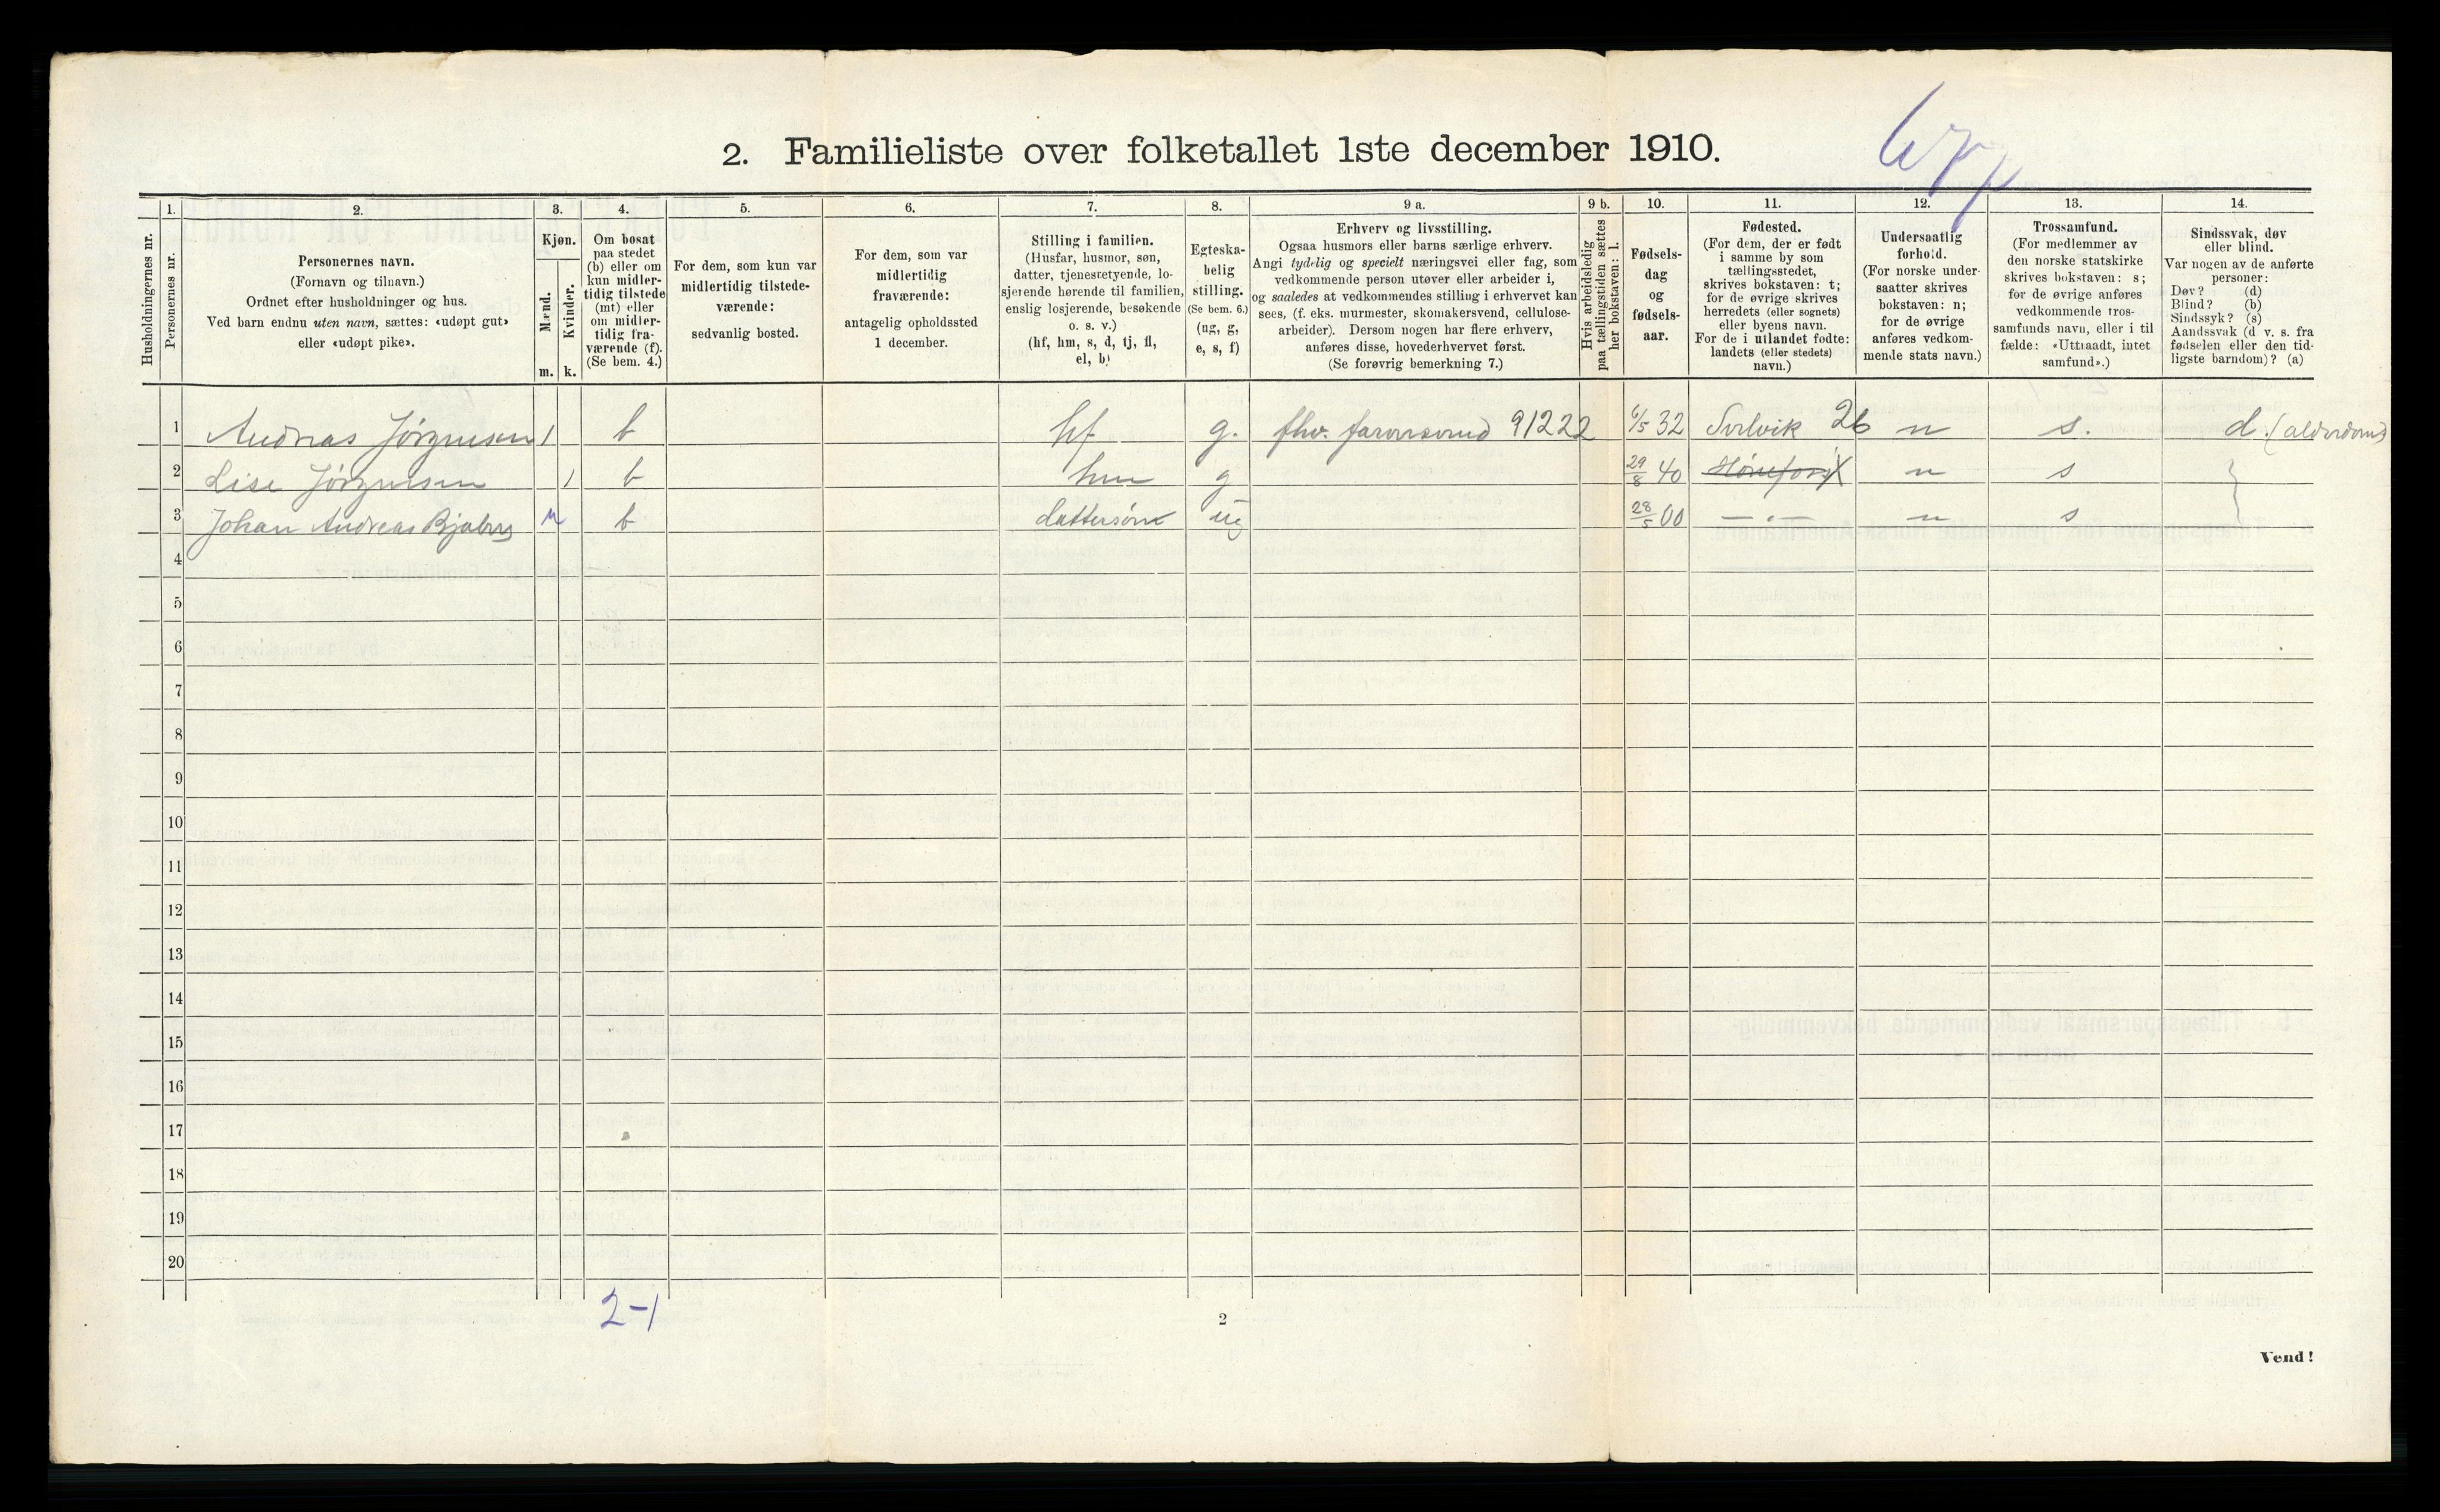 2. Familieliste over folketallet 1ste december 1910.
Husholdningernes nr.
1.
Personernes nr.
2.
Personernes navn.
(Fornavn og tilnavn.)
Ordnet efter husholdninger og hus.
Ved barn endnu uten navn, sættes: «udøpt gut»
eller «udøpt pike».
3.
Kjøn.
Mænd.
Kvinder.
m. k.
4.
Om bosat
paa stedet
(b) eller om
kun midler-
tidig tilstede
(mt) eller
om midler-
tidig fra-
værende (f).
(Se bem. 4.)
5.
For dem, som kun var
midlertidig tilstede-
værende:
sedvanlig bosted.
6.
For dem, som var
midlertidig
fraværende:
antagelig opholdssted
1 december.
7.
Stilling i familien.
(Husfar, husmor, søn,
datter, tjenestetyende, lo-
sjerende hørende til familien,
enslig losjerende, besøkende
o. s. v.)
(hf, hm, s, d, tj, fl,
el, b)
8.
Egteska-
belig
stilling.
(Se bem. 6.)
(ug, g,
e, s, f)
9 a.
Erhverv og livsstilling.
Ogsaa husmors eller barns særlige erhverv.
Angi tydelig og specielt næringsvei eller fag, som
vedkommende person utøver eller arbeider i,
og saaledes at vedkommendes stilling i erhvervet kan
sees, (f. eks. murmester, skomakersvend, cellulose-
arbeider). Dersom nogen har flere erhverv,
anføres disse, hovederhvervet først.
(Se forøvrig bemerkning 7.)
9 b.
Hvis arbeidsledig
paa tællingstiden sættes
her bokstaven: l.
10.
Fødsels-
dag
og
fødsels-
aar.
11.
Fødested.
(For dem, der er født
i samme by som
tællingsstedet,
skrives bokstaven: t;
for de øvrige skrives
herredets (eller sognets)
eller byens navn.
For de i utlandet fødte:
landets (eller stedets)
navn.)
12.
Undersaatlig
forhold.
(For norske under-
saatter skrives
bokstaven: n;
for de øvrige
anføres vedkom-
mende stats navn.)
13.
Trossamfund.
(For medlemmer av
den norske statskirke
skrives bokstaven: s;
for de øvrige anføres
vedkommende tros-
samfunds navn, eller i til-
fælde: «Uttraadt, intet
samfund».)
14.
Sindssvak, døv
eller blind.
Var nogen av de anførte
personer:
Døv? (d)
Blind? (b)
Sindssyk? (s)
Aandssvak (d v. s. fra
fødselen eller den tid-
ligste barndom)? (a)
1 Andreas Jørgensen 1 b hf g. fhv. 91222 6/5 32 Svelvik 26 n s. d. (alderdom)
2 Lise Jørgensen 1 b hm g 29/8 40 Hønefos X n s
3 Johan Andreas b dattersøn ug 28/5 00 — . — n s
4
5
6
7
8
9
10
11
12
13
14
15
16
17
18
19
20
2-1
2
Vend!